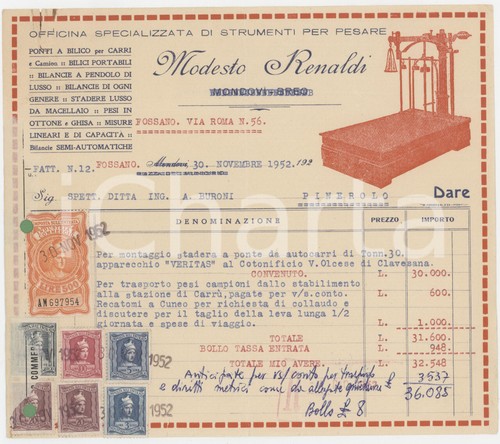 OFFICINA SPECIALIZZATA DI STRUMENTI PER PESARE
PONTI A BILICO per CARRI
e Camion :: BILICI PORTABILI
:: BILANCIE A PENDOLO DI
LUSSO :: BILANCIE DI OGNI
GENERE :: STADERE LUSSO
DA MACELLAIO :: PESI IN
OTTONE e GHISA :: MISURE
LINEARI E DI CAPACITA ::
Bilancie SEMI-AUTOMATICHE
Modesto Renaldi
MONDOVI BREO
FOSSANO. VIA ROMA N.56.
FATT. N.12. FOSSANO. Mondovì 30. NOVEMBRE 1952. 192
Sig. SPETT. DITTA ING. A. BURONI PINEROLO
Dare
DENOMINAZIONE PREZZO IMPORTO
Per montaggio stadera a ponte da autocarri di Tonn.30.
apparecchio "VERITAS" al Cotonificio V.Olcese di Clavesana.
CONVENUTO. L. 30.000.
Per trasporto pesi campioni dallo stabilimento
alla stazione di Carrù, pagate per v/s.conto. L. 600.
Recatomi a Cuneo per richiesta di collaudo e
discutere per il taglio della leva lunga 1/2
giornata e spese di viaggio. L. 1.000.
TOTALE L. 31.600
BOLLO TASSA ENTRATA L. 948
TOTALE MIO AVERE. L. 32.548
Anticipate per Vs/ conto per trasporto
e diritti metrici come da 3537
36.085
Bollo £ 8
30 NOV 1952
LIRE 500
AN 697954
1952
1952
iCharta